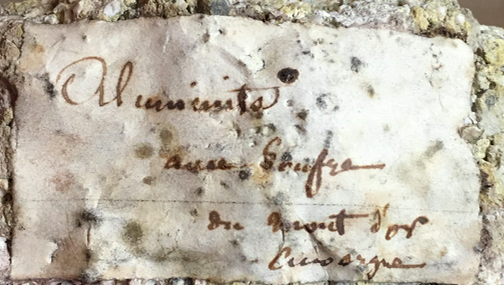 Aluminite
avec Soufre
du mont d'or
Auvergne